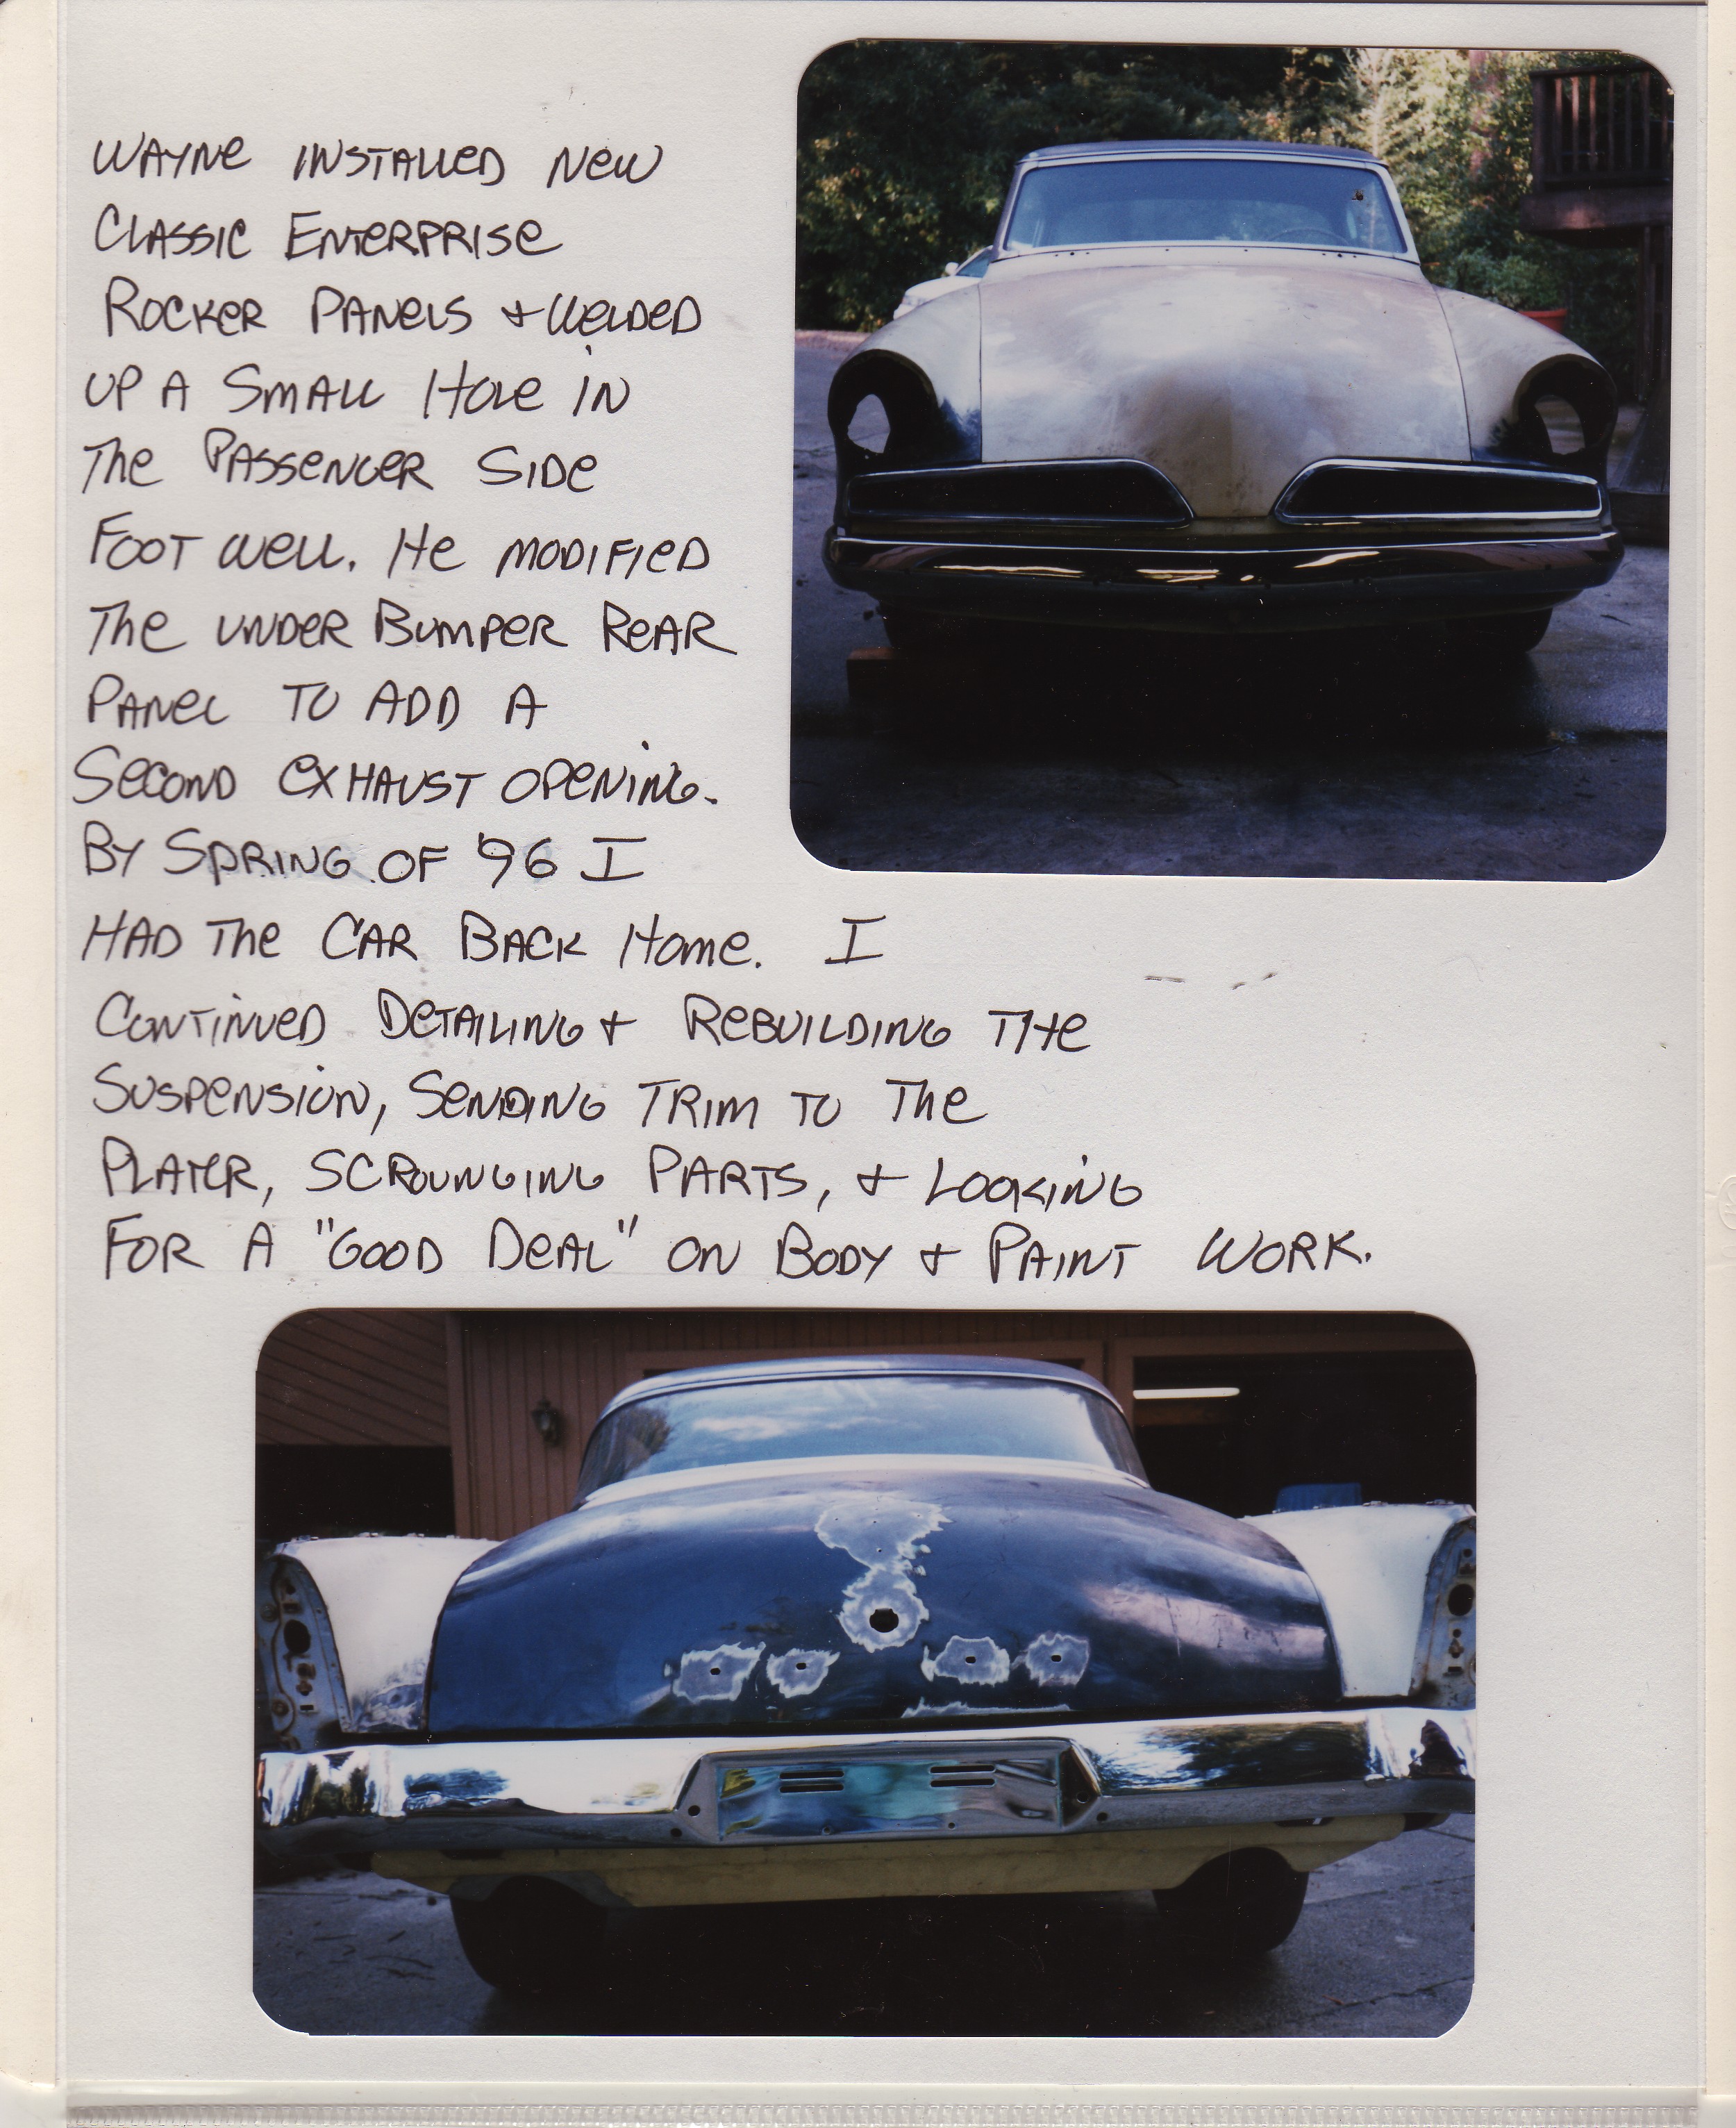 Wayne installed new
Classic Enterprise
Rocker Panels & welded
up a small hole in
the passenger side
foot well. He modified
the under bumper rear
panel to add a
second exhaust opening.
By Spring of '96 I
had the car back home. I
continued detailing & rebuilding the
suspension, sending trim to the
plater, scrounging parts, & looking
for a "good deal" on body & paint work.